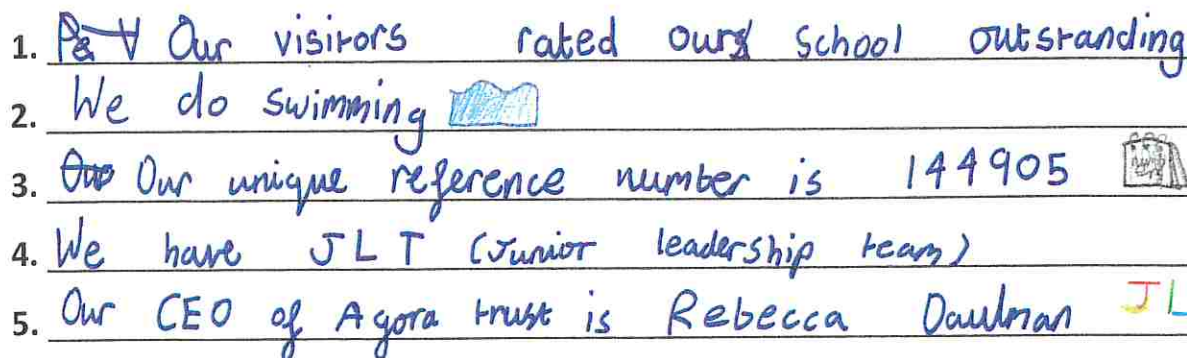 1. Our visitors rated our school outstanding
2. We do swimming
3. Our unique reference number is 144905
4. We have JLT (Junior leadership team)
5. Our CEO of Agora trust is Rebecca Daulman JL